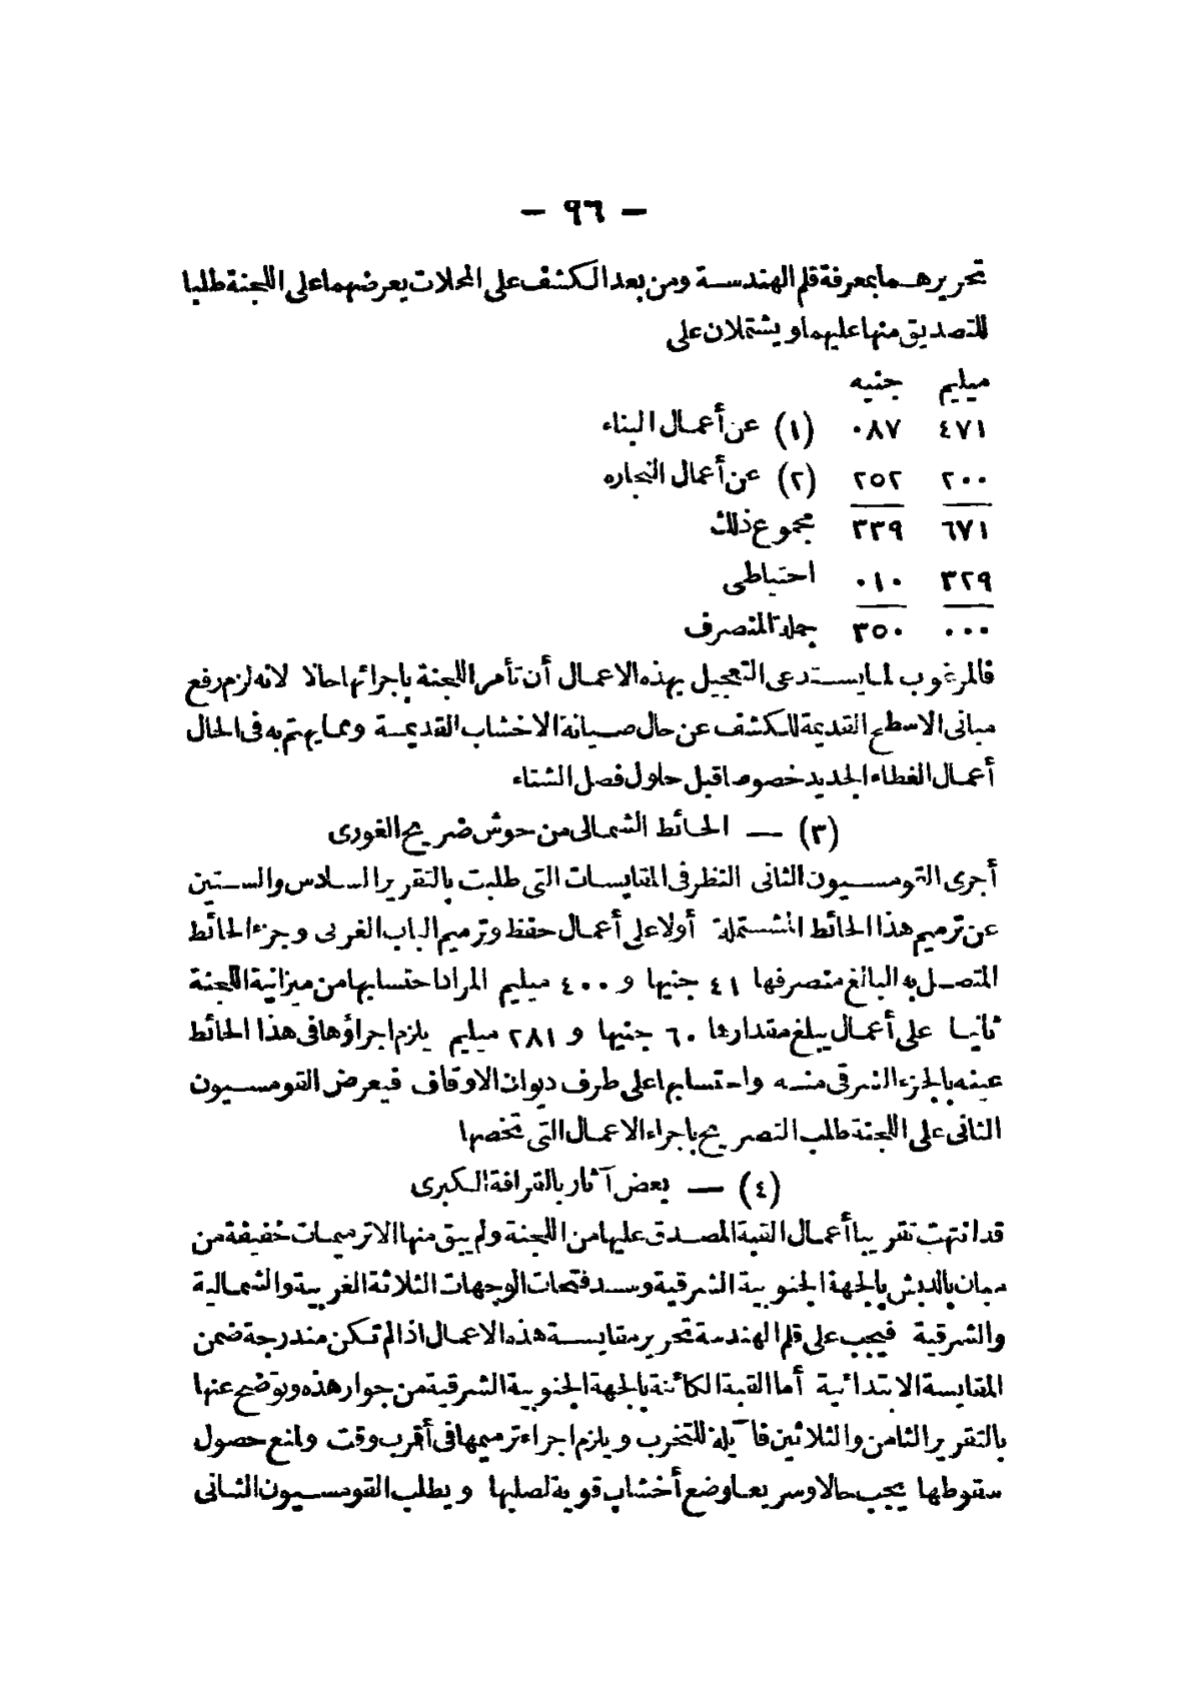 — ٩٦ —
تحريرهما بمعرفة قلم الهندسة ومن بعد الكشف على المحلات يعرضهما على اللجنة طلبا
للتصديق منها عليهما ويشتملان على
ميليم جنيه
٤٧١ ٠٨٧ (١) عن أعمال البناء
٢٠٠ ٢٥٢ (٢) عن أعمال النجاره
٦٧١ ٣٣٩ مجموع ذلك
٣٢٩ ٠١٠ احتياطى
٠٠٠ ٣٥٠ جملة المنصرف
فالمرغوب لما يستدعى التعجيل بهذه الاعمال أن تأمر اللجنة باجرائها حالا لانه لزم رفع
مبانى الاسطح القديمة للكشف عن حال صيانة الاخشاب القديمة ومما يهتم به فى الحال
أعمال الغطاء الجديد خصوصا قبل حلول فصل الشتاء
(٣) — الحائط الشمالى من حوش ضريح الغورى
أجرى القومسيون الثانى النظر فى المقايسات التى طلبت بالتقرير السادس والستين
عن ترميم هذا الحائط المشتملة أولا على أعمال حفظ وترميم الباب الغربى وجزء الحائط
المتصل به البالغ منصرفها ٤١ جنيها و ٤٠٠ ميليم المراد احتسابها من ميزانية اللجنة
ثانيا على أعمال يبلغ مقدارها ٦٠ جنيها و ٢٨١ ميليم يلزم اجراؤها فى هذا الحائط
عينه بالجزء الشرقى منه واحتسابها على طرف ديوان الاوقاف فيعرض القومسيون
الثانى على اللجنة طلب التصريح باجراء الاعمال التى تخصها
(٤) — بعض آثار بالقرافة الكبرى
قد انتهت تقريبا أعمال القبة المصدق عليها من اللجنة ولم يبق منها الا ترميمات خفيفة من
مبان بالدبش بالجهة الجنوبية الشرقية وسد فتحات الوجهات الثلاثة الغربية والشمالية
والشرقية فيجب على قلم الهندسة تحرير مقايسة هذه الاعمال اذا لم تكن مندرجة ضمن
المقايسة الابتدائية أما القبة الكائنة بالجهة الجنوبية الشرقية من جوار هذه وتوضح عنها
بالتقرير الثامن والثلاثين فآيلة للتخرب ويلزم اجراء ترميمها فى أقرب وقت ولمنع حصول
سقوطها يجب حالا وسريعا وضع أخشاب قوية لصلبها ويطلب القومسيون الثانى